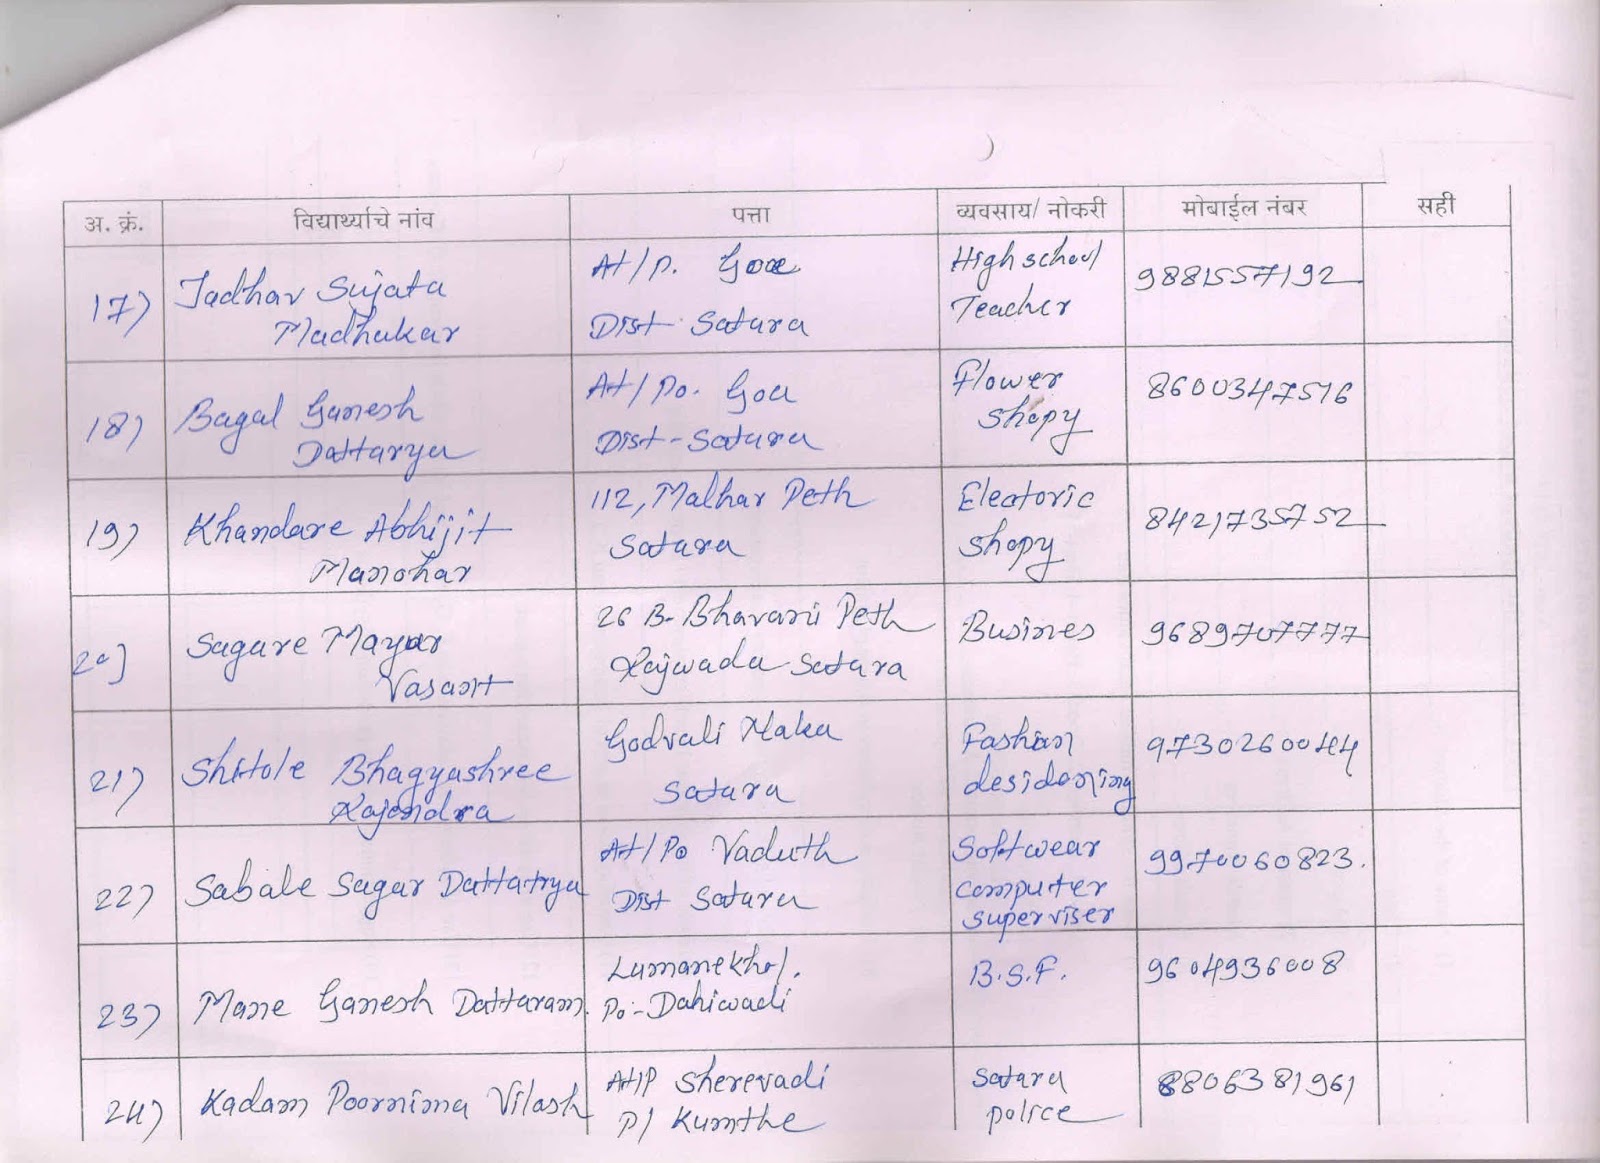 अ. क्रं. विद्यार्थ्याचे नांव पत्ता व्यवसाय/ नोकरी मोबाईल नंबर सही
17) Jadhav Sujata Madhukar At/P. Goa Dist Satara High school Teacher 9881557192
18) Bagal Ganesh Dattarya At/Po. Goa Dist-Satara Flower Shopy 8600347516
19) Khandare Abhijit Manohar 112, Malhar Peth Satara Electoric Shopy 8421735752
20) Sagare Mayur Vasant 26 B. Bhavani Peth Rajwada Satara Busines 9689707777
21) Shitole Bhagyashree Rajendra Godvali Naka Satara Fashion desidening 9730260044
22) Sabale Sagar Dattatrya At/Po Vaduth Dist Satara Softwear computer superviser 9970060823.
23) Mane Ganesh Dattaram. Lumanekhol. Po:-Dahiwadi B.S.F. 9604936008
24) Kadam Poornima Vilash At/P Sherevadi P/ Kumthe Satara police 8806381961